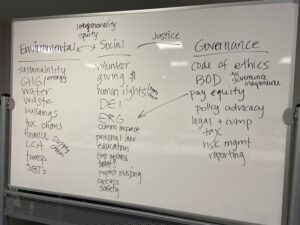 intersectionality
equity
Justice
Environmental
Social
Governance
sustainability
GHG/energy
water
waste
buildings
tox. chems
finance
supply chain
LCA
transp.
SBTs
volunteer
giving $
human rights
DEI
ERG
comm impact
personal dev
education
impact investing
access
safety
code of ethics
BOD
pay equity
policy advocacy
legal + comp
tax
risk mgmt
reporting